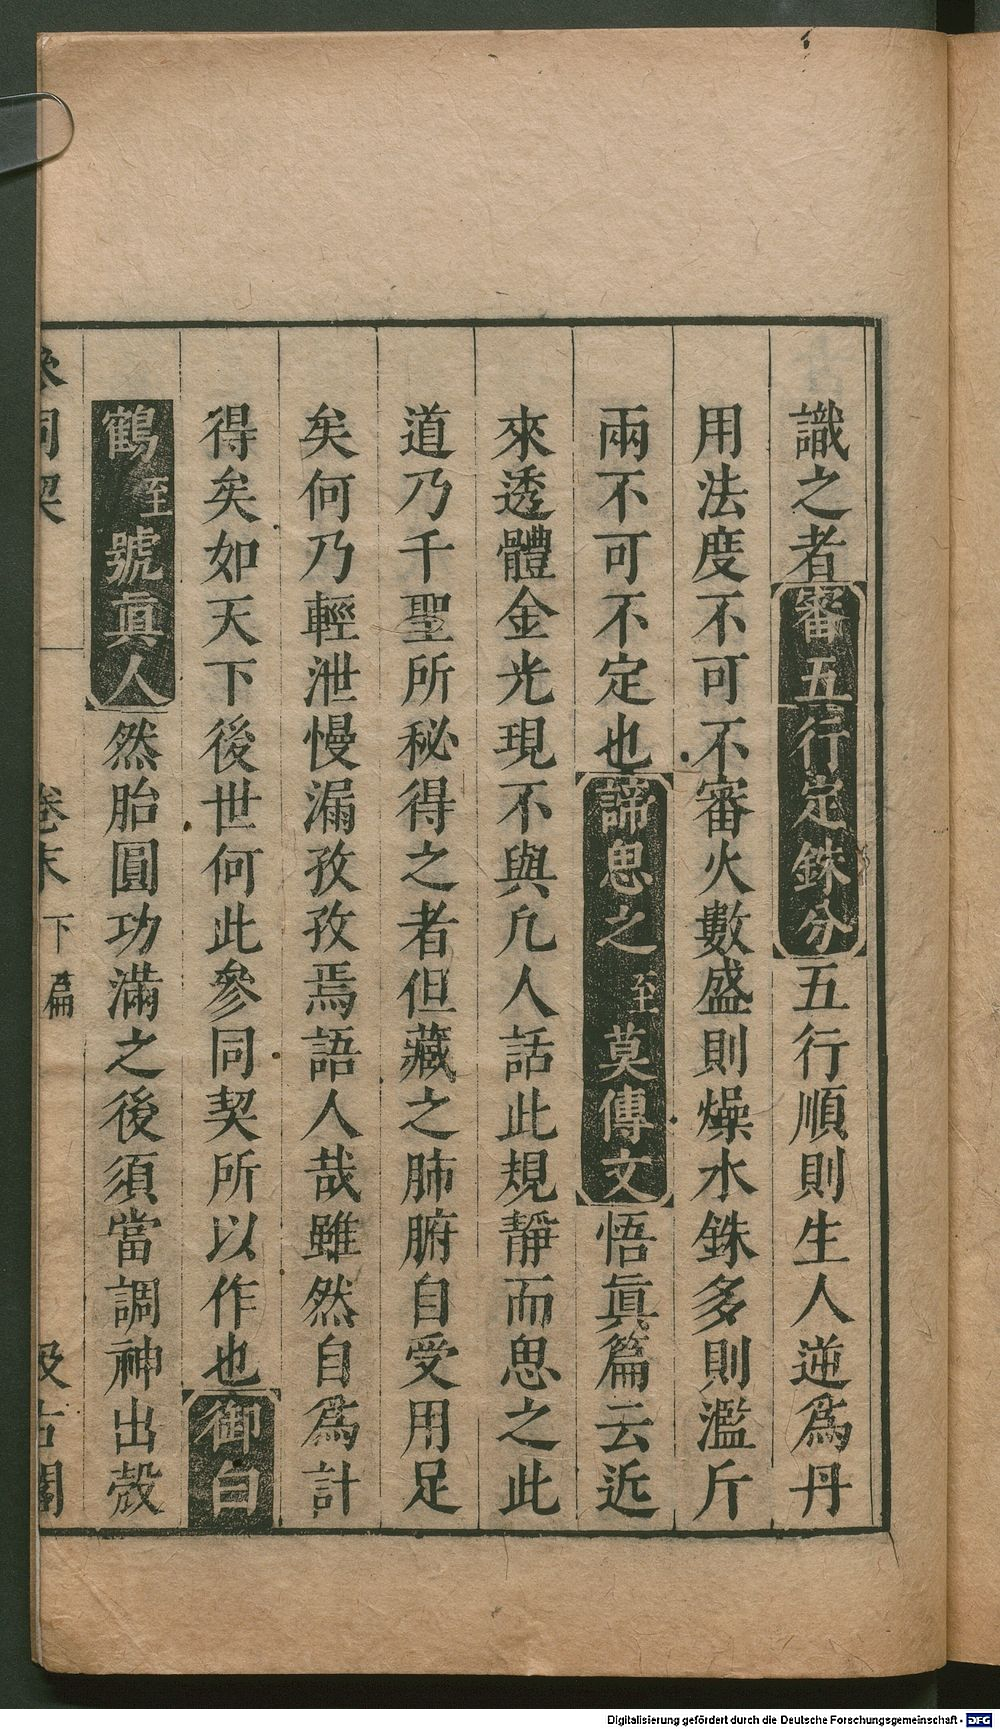 識之者審五行定銖分五行順則生人逆爲丹
用法度不可不審火數盛則燥水銖多則濫斤
兩不可不定也諦思之至莫傳文悟眞篇云近
來透體金光現不與凡人話此規靜而思之此
道乃千聖所秘得之者但藏之肺腑自受用足
矣何乃輕泄慢漏孜孜焉語人哉雖然自爲計
得矣如天下後世何此參同契所以作也御白
鶴至號眞人然胎圓功滿之後須當調神出殼
同契 卷末 下篇 汲古閣
Digitalisierung gefördert durch die Deutsche Forschungsgemeinschaft - DFG